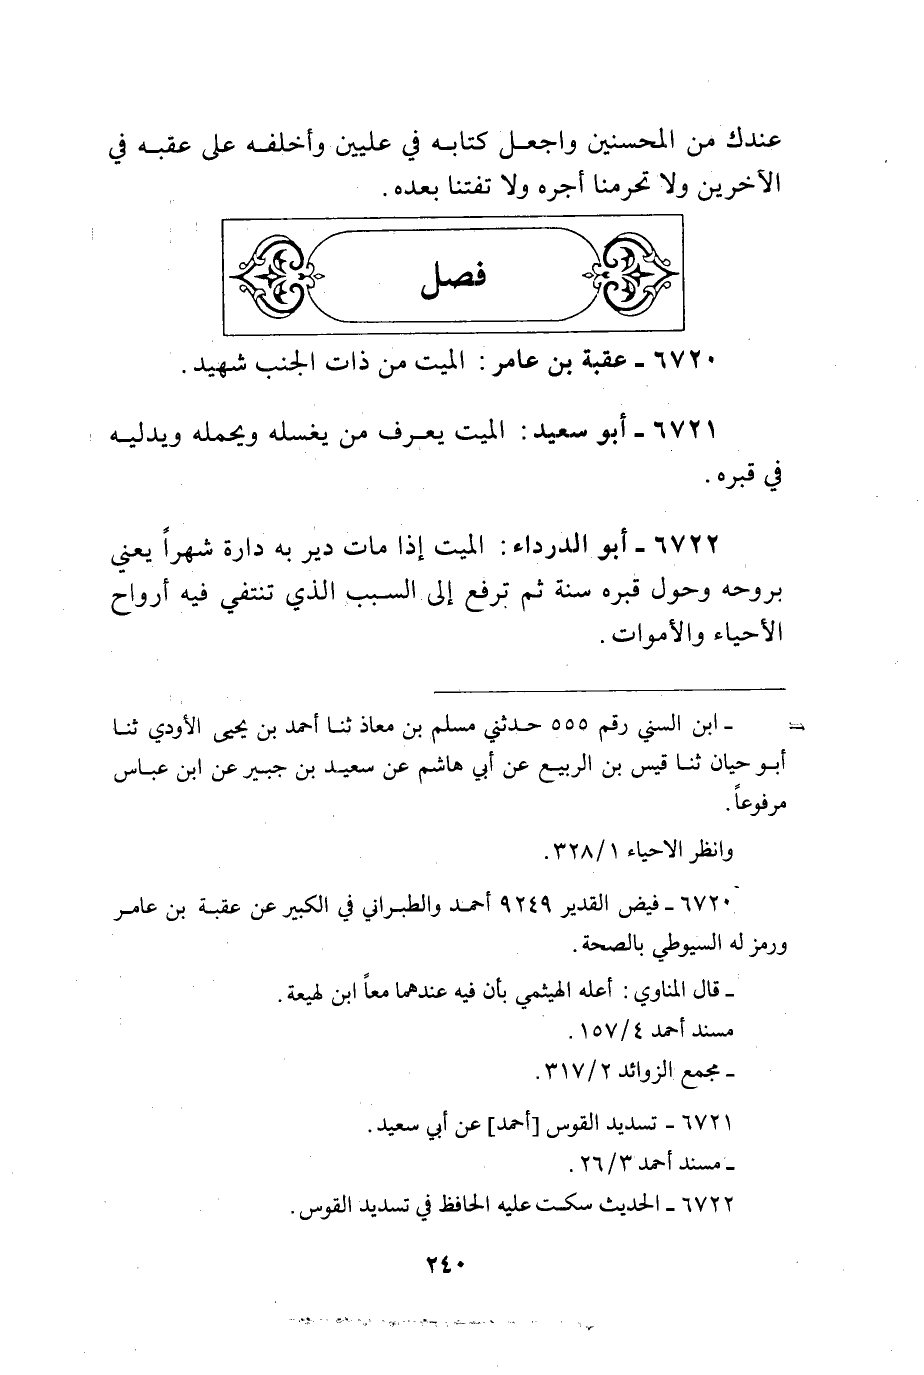 عندك من المحسنين واجعـل كتابـه في عليين وأخلفـه على عقبـه في
الآخرين ولا تحرمنا أجره ولا تفتنا بعده .
فصل
٦٧٢٠ ـ عقبة بن عامر : الميت من ذات الجنب شهيد .
٦٧٢١ ـ أبو سعيد : الميت يعـرف من يغسله ويحمله ويدليـه
في قبره .
٦٧٢٢ ـ أبو الدرداء : الميت إذا مات دير به دارة شهراً يعني
بروحه وحول قبره سنة ثم ترفع إلى السبب الذي تنتفي فيه أرواح
الأحياء والأموات .
= ـ ابن السني رقم ٥٥٥ حـدثني مسلم بن معاذ ثنـا أحمد بن يحيى الأودي ثنـا
أبـو حيان ثنـا قيس بن الربيـع عن أبي هاشم عن سعيـد بن جبـير عن ابن عبـاس
مرفوعاً .
وانظر الاحياء ٣٢٨/١ .
٦٧٢٠ ـ فيض القدير ٩٢٤٩ أحمـد والطبـراني في الكبير عن عقبـة بن عامـر
ورمز له السيوطي بالصحة .
ـ قال المناوي : أعله الهيثمي بأن فيه عندهما معاً ابن لهيعة .
مسند أحمد ١٥٧/٤ .
ـ مجمع الزوائد ٣١٧/٢ .
٦٧٢١ ـ تسديد القوس [أحمد] عن أبي سعيد .
ـ مسند أحمد ٢٦/٣ .
٦٧٢٢ ـ الحديث سكـت عليه الحافظ في تسديد القوس .
٢٤٠